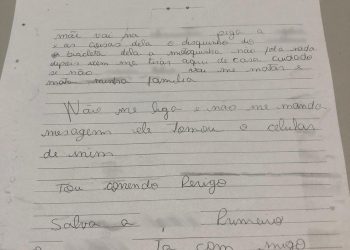 mãe vai na pega a
e as coisas dela o disquinho do
bicicleta dela a motoquinha não fala nada
depois vem me tirar aqui de casa cuidado
se não vai me matar e
mata família
Não me liga e não me manda
mesagem ele tomou o celular
de mim
Tou corendo Perigo
Salva a , Primeiro
Ta com migo